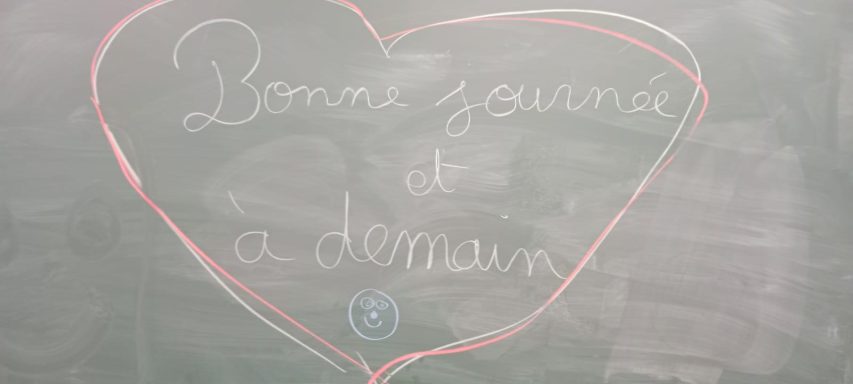 Bonne journée
et
à demain